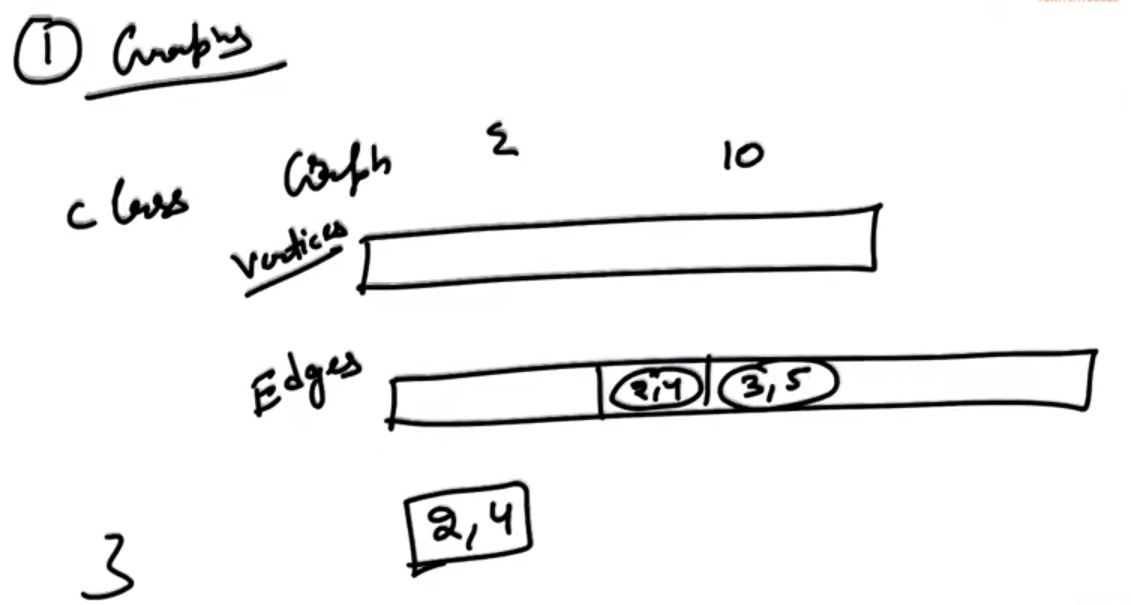 ① Graphs
class Graph {
10
Vertices
Edges 2,4 3,5
2,4
}